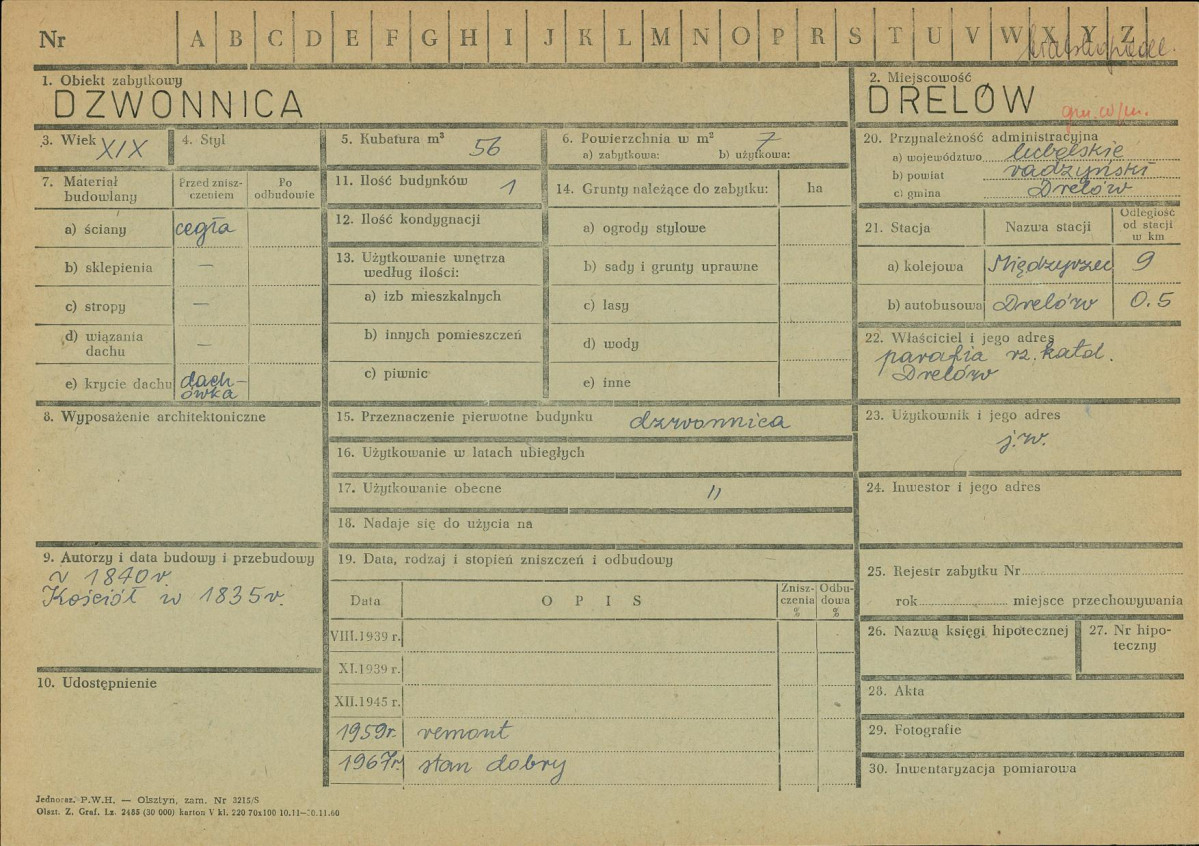 Nr A B C D E F G H I J K L M N O P R S T U V W X Y Z
1. Obiekt zabytkowy
DZWONNICA
2. Miejscowość
DRELÓW
gm. w/m.
3. Wiek XIX
4. Styl
5. Kubatura m³ 56
6. Powierzchnia w m² 7
a) zabytkowa: b) użytkowa:
7. Materiał budowlany
Przed zniszczeniem
Po odbudowie
a) ściany cegła
b) sklepienia —
c) stropy —
d) wiązania dachu —
e) krycie dachu dachówka
8. Wyposażenie architektoniczne
9. Autorzy i data budowy i przebudowy
z 1840 r.
Kościół w 1835 r.
10. Udostępnienie
11. Ilość budynków 1
12. Ilość kondygnacji
13. Użytkowanie wnętrza
według ilości:
a) izb mieszkalnych
b) innych pomieszczeń
c) piwnic
14. Grunty należące do zabytku: ha
a) ogrody stylowe
b) sady i grunty uprawne
c) lasy
d) wody
e) inne
15. Przeznaczenie pierwotne budynku dzwonnica
16. Użytkowanie w latach ubiegłych
17. Użytkowanie obecne "
18. Nadaje się do użycia na
19. Data, rodzaj i stopień zniszczeń i odbudowy
Data OPIS Zniszczenia % Odbudowa %
VIII.1939 r.
XI.1939 r.
XII.1945 r.
1959 r. remont
1967 r. stan dobry
20. Przynależność administracyjna
a) województwo lubelskie
b) powiat radzyński
c) gmina Drelów
21. Stacja Nazwa stacji Odległość od stacji w km
a) kolejowa Międzyrzec 9
b) autobusowa Drelów 0.5
22. Właściciel i jego adres
parafia rz. katol.
Drelów
23. Użytkownik i jego adres
j.w.
24. Inwestor i jego adres
25. Rejestr zabytku Nr
rok miejsce przechowywania
26. Nazwa księgi hipotecznej
27. Nr hipoteczny
28. Akta
29. Fotografie
30. Inwentaryzacja pomiarowa
Jednoraz. P.W.H. — Olsztyn, zam. Nr 3215/S
Olszt. Z. Graf. Lz. 2485 (30 000) karton V kl. 220 70x100 10.11—30.11.60